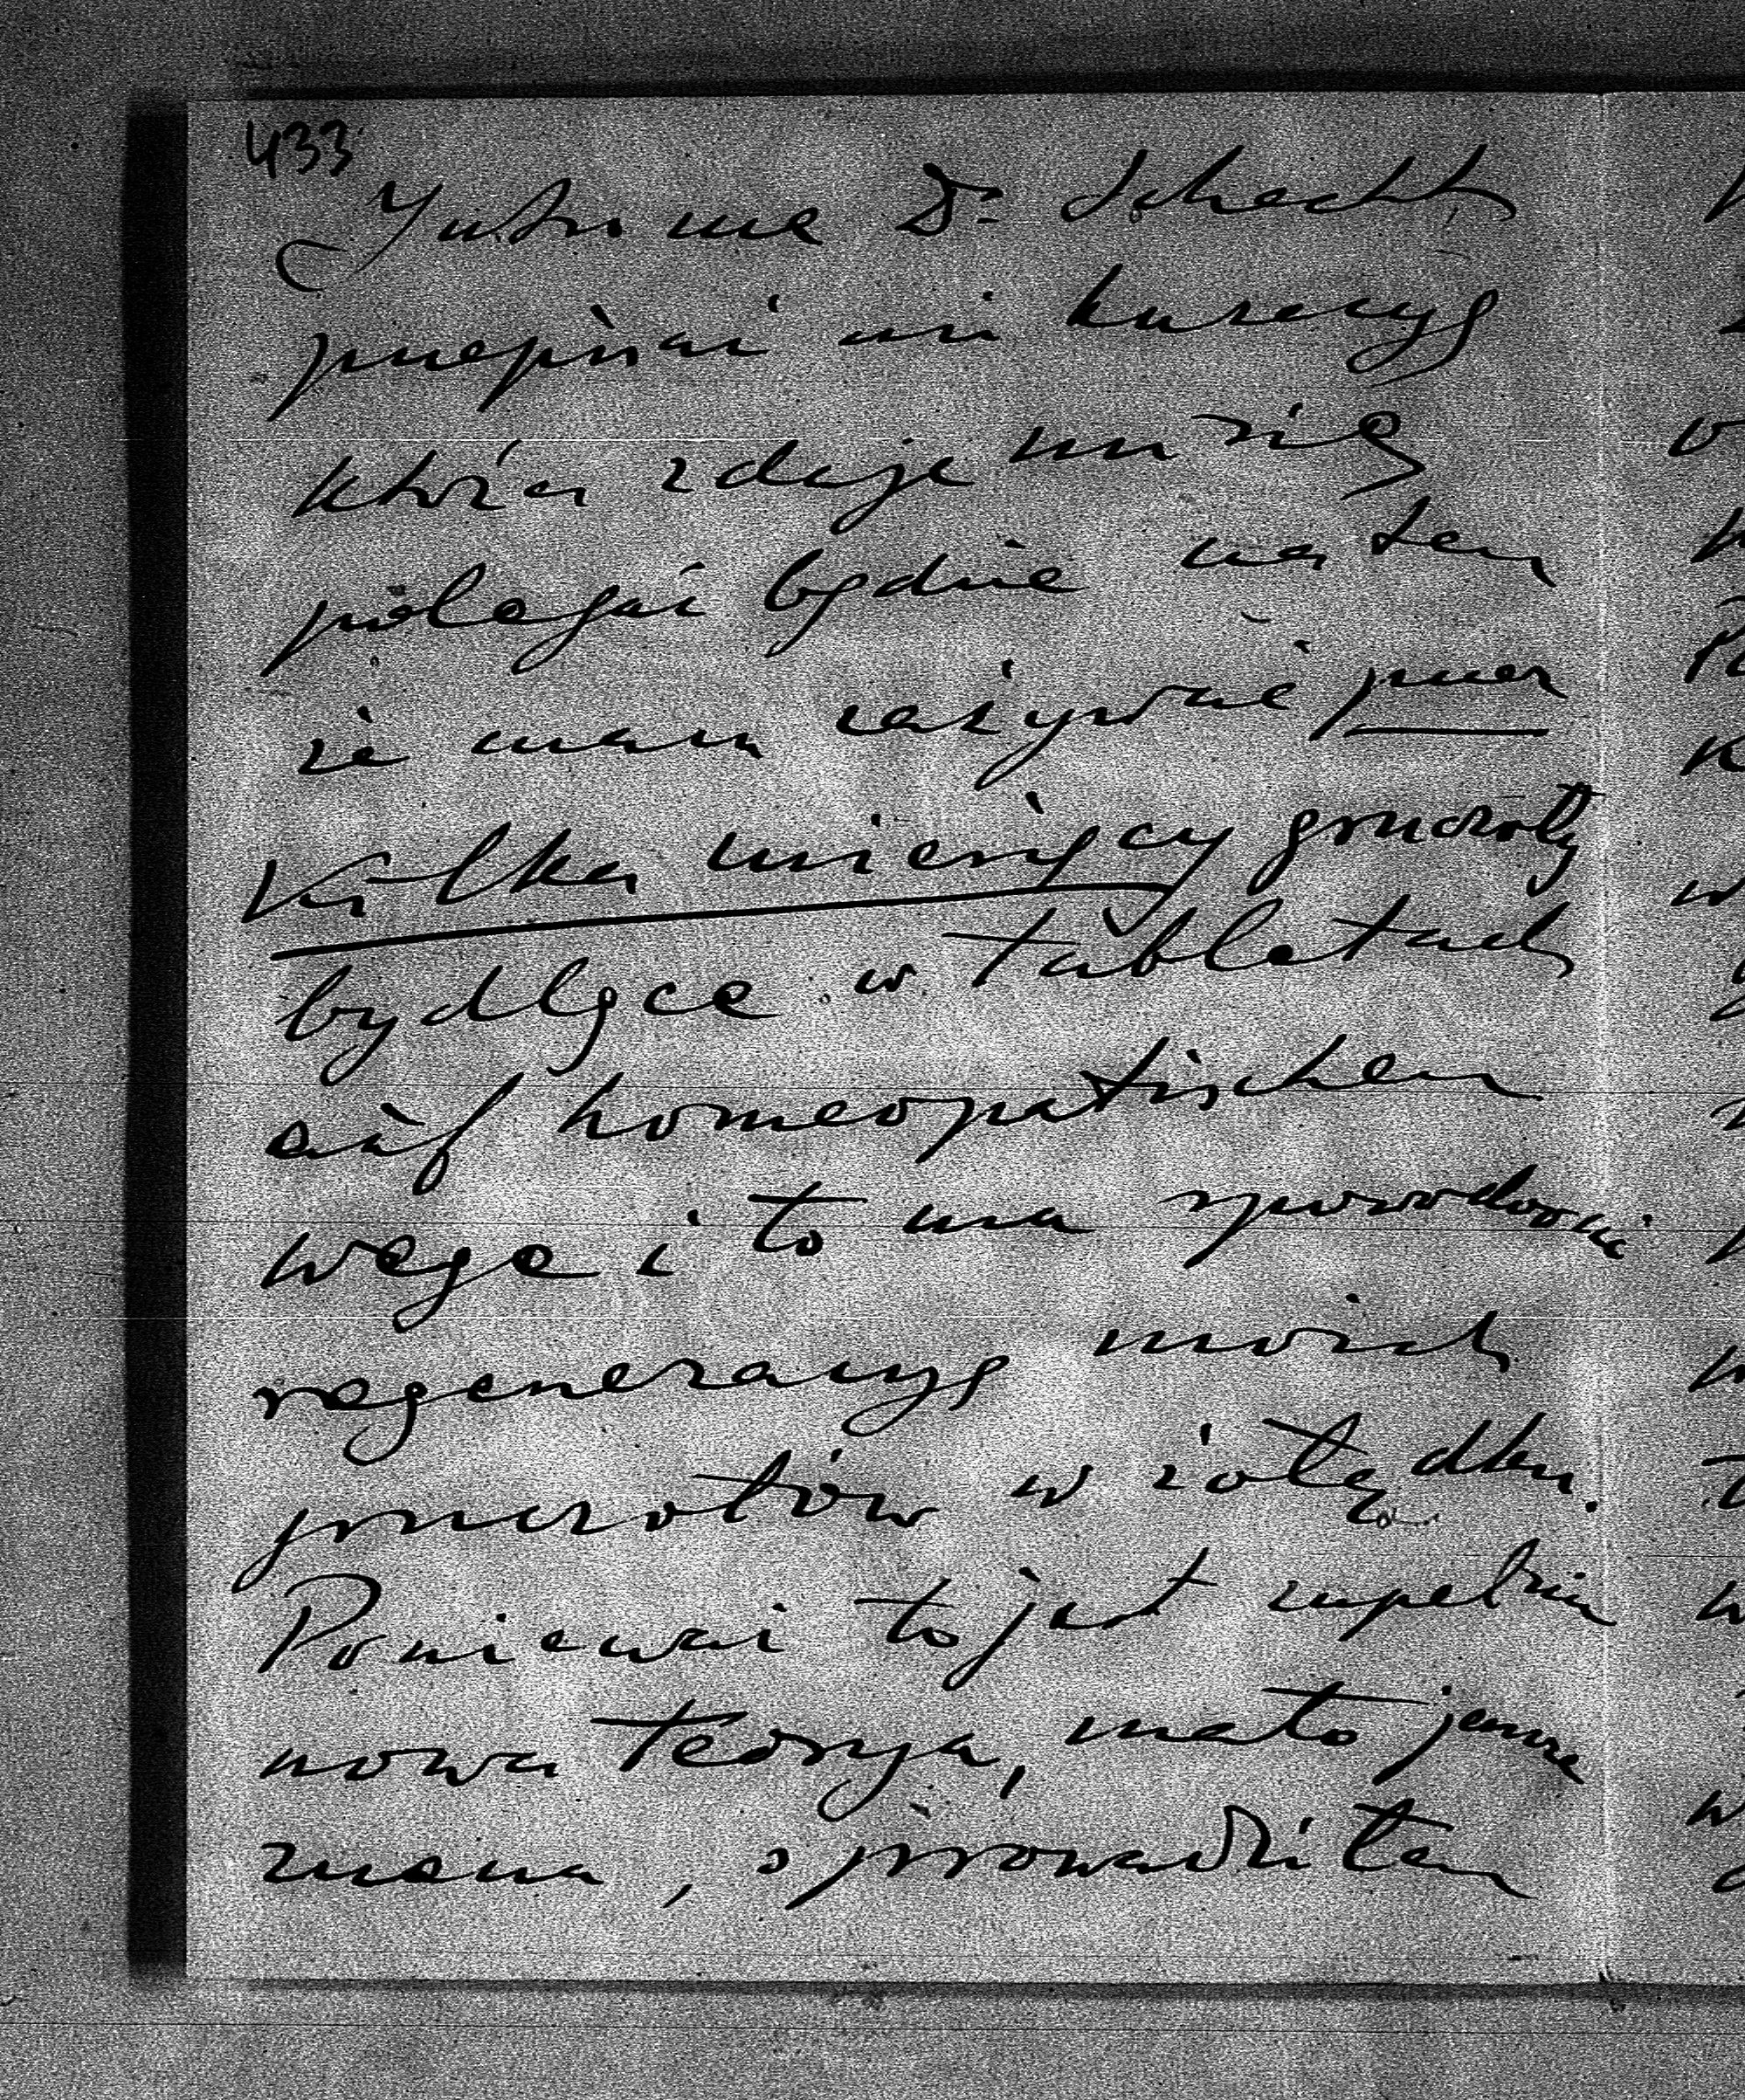 433
Jutro ma Dr. Schecht
przepisać mi kuracyę
która zdaje mi się
polegać będzie na tem
że mam zażywać przez
kilka miesięcy gruczoły
bydlęce w tabletach
auf homeopatischen
wege i to ma spowodować
regeneracyę moich
gruczołów w żołądku.
Ponieważ to jest zupełnie
nowa teorya, mało jeszcze
znana, sprowadziłem